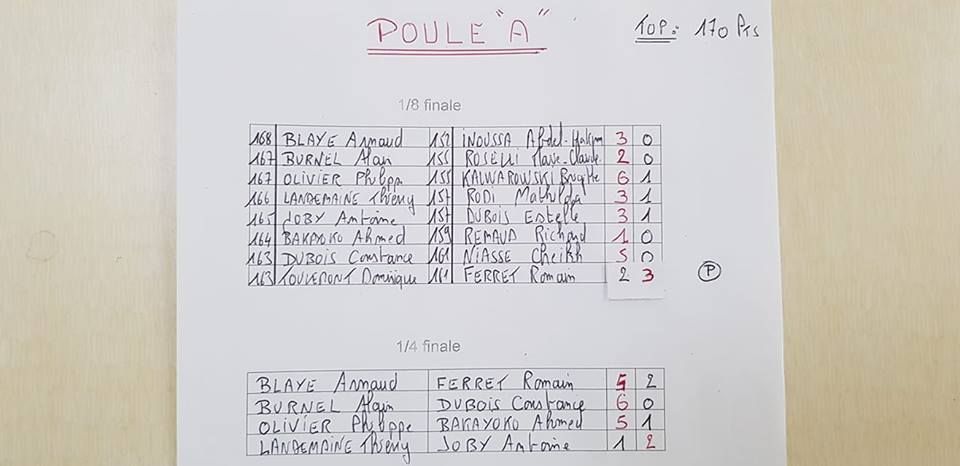 POULE "A"
TOP: 170 Pts
1/8 finale
168 BLAYE Arnaud 152 INOUSSA Abdel-Hakim 3 0
167 BURNEL Alain 155 ROSELLI Marie-Claude 2 0
167 OLIVIER Philippe 155 KALWAROWSKI Brigitte 6 1
166 LANDEMAINE Thierry 157 RODI Mathilda 3 1
165 JOBY Antoine 157 DUBOIS Estelle 3 1
164 BAKAYOKO Ahmed 159 REMAUD Richard 1 0
163 DUBOIS Constance 161 NIASSE Cheikh 5 0
163 Dominique 161 FERRET Romain 2 3
P
1/4 finale
BLAYE Arnaud FERRET Romain 5 2
BURNEL Alain DUBOIS Constance 6 0
OLIVIER Philippe BAKAYOKO Ahmed 5 1
LANDEMAINE Thierry JOBY Antoine 1 2